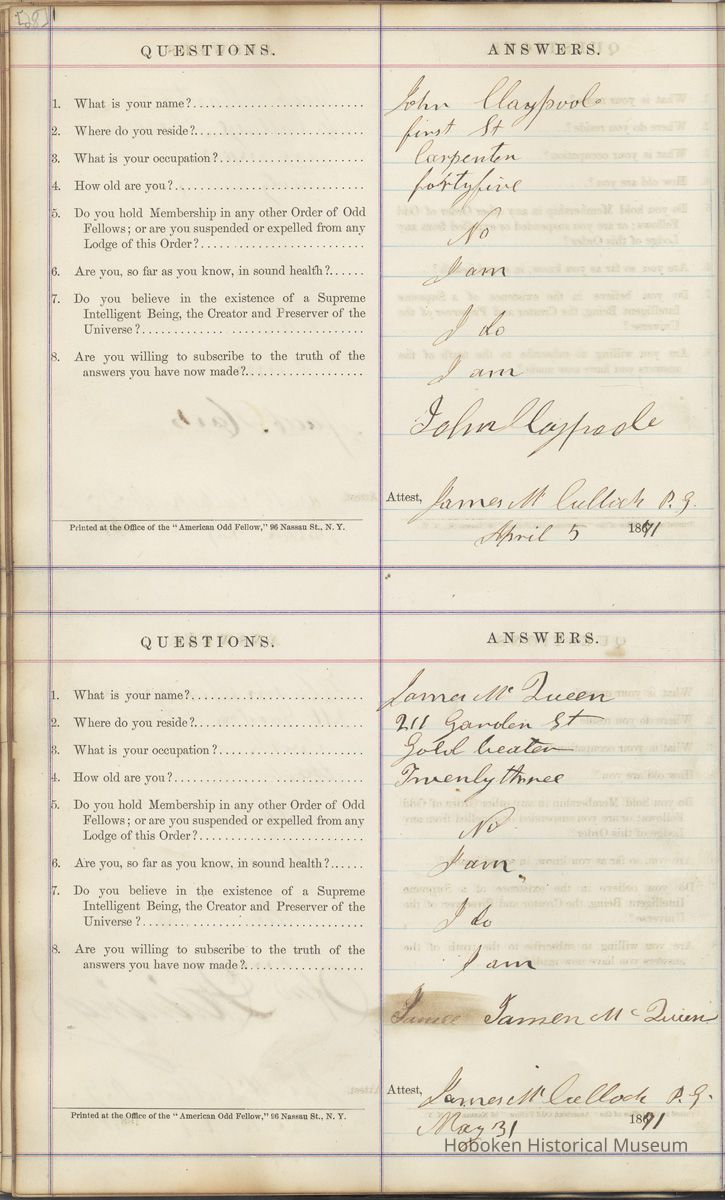 QUESTIONS. ANSWERS.
1. What is your name? John Claypoole
2. Where do you reside? first St
3. What is your occupation? Carpenter
4. How old are you? fortyfive
5. Do you hold Membership in any other Order of Odd
Fellows; or are you suspended or expelled from any
Lodge of this Order? No
6. Are you, so far as you know, in sound health? I am
7. Do you believe in the existence of a Supreme
Intelligent Being, the Creator and Preserver of the
Universe? I do
8. Are you willing to subscribe to the truth of the
answers you have now made? I am
John Claypoole
Attest, James McCulloch P. G.
Printed at the Office of the "American Odd Fellow," 96 Nassau St., N. Y.
April 5 1871
QUESTIONS. ANSWERS.
1. What is your name? James McQueen
2. Where do you reside? 211 Garden St
3. What is your occupation? Gold beater
4. How old are you? Twentythree
5. Do you hold Membership in any other Order of Odd
Fellows; or are you suspended or expelled from any
Lodge of this Order? No
6. Are you, so far as you know, in sound health? I am
7. Do you believe in the existence of a Supreme
Intelligent Being, the Creator and Preserver of the
Universe? I do
8. Are you willing to subscribe to the truth of the
answers you have now made? I am
James McQueen
Attest, James McCulloch P. G.
Printed at the Office of the "American Odd Fellow," 96 Nassau St., N. Y.
May 31 1871
Hoboken Historical Museum